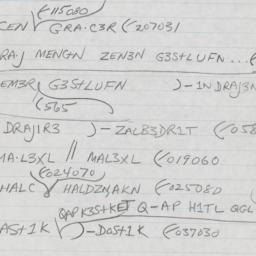 (115080
CEN GRA·C3R (207031
RAJ MENGN ZEN3N G3StLUFN...
EM3R G3StLUFN )-1NDRAJ3N
(565
DRAJ1R3 )-ZALB3DR1T (058
MA·L3XL // MAL3XL (019060
(024070
HALC HALDZNAKN (025080
QAPK3StKET Q-AP H1TL QGL
ASt1K )-DOSt1K (037030